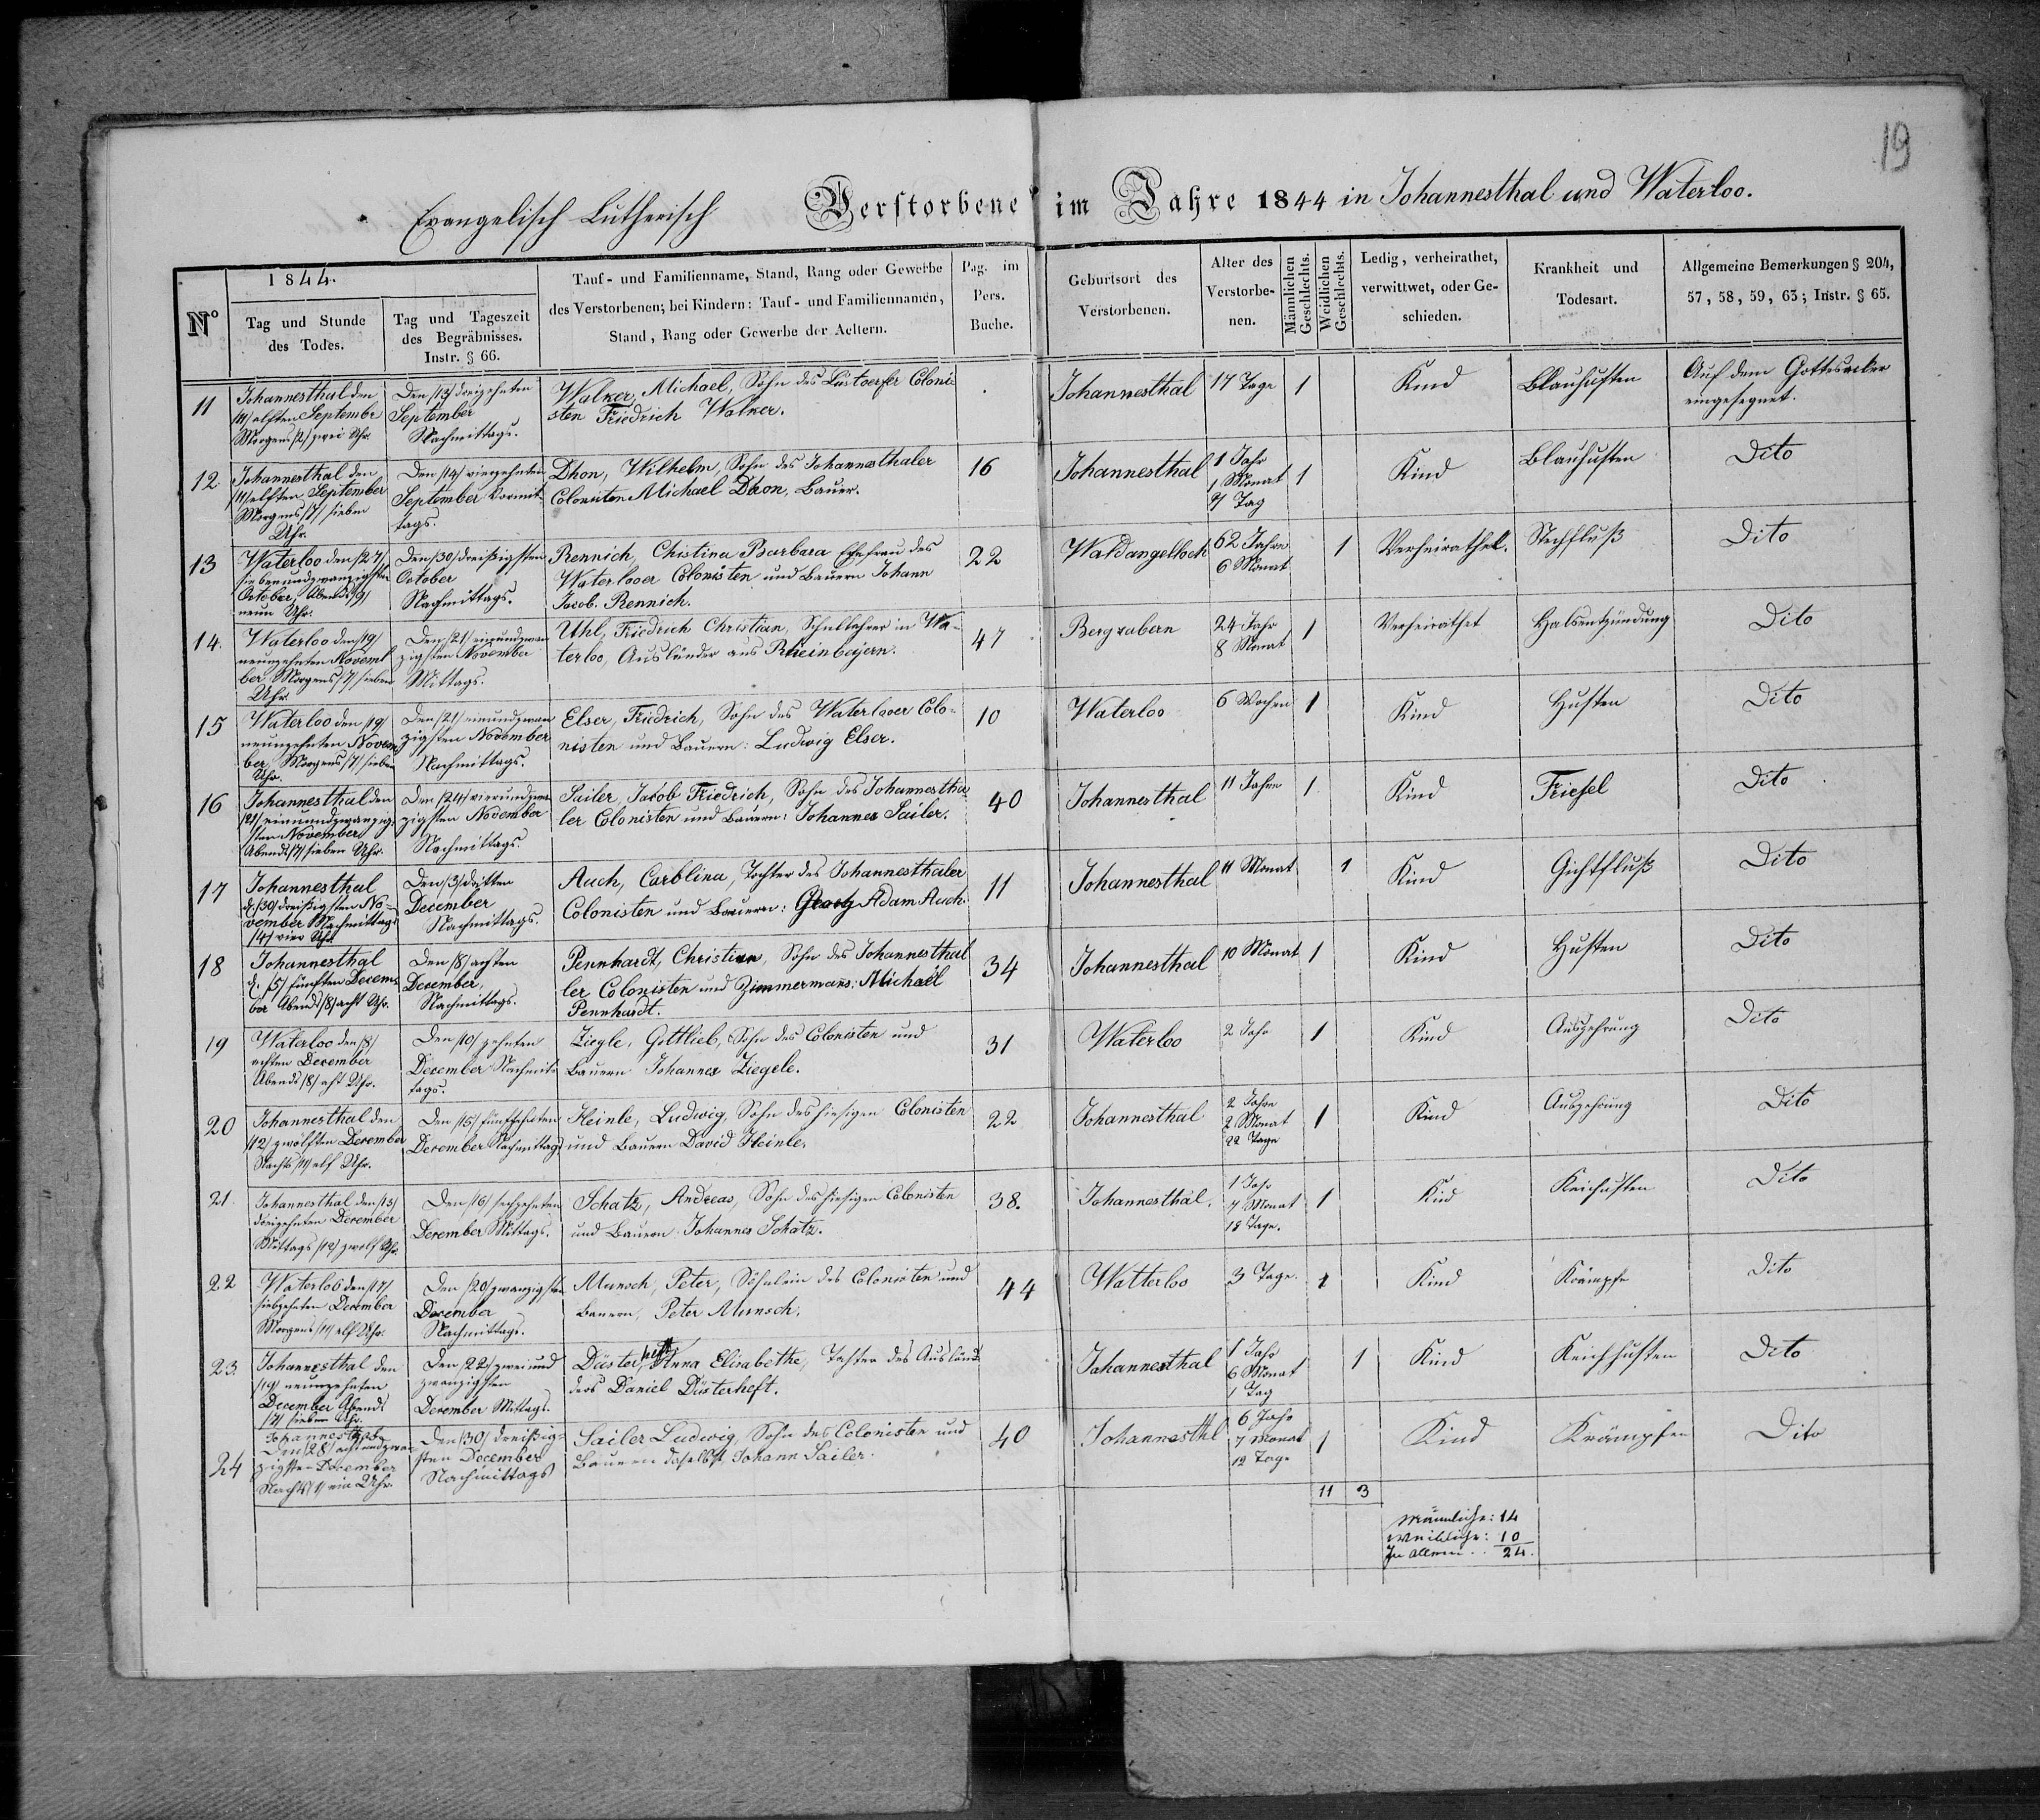 19
Evangelisch Lutherisch Verstorbene im Jahre 1844 in Johannesthal und Waterloo.
No
1844.
Tag und Stunde
des Todes.
Tag und Tageszeit
des Begräbnisses.
Instr. § 66.
Tauf- und Familienname, Stand, Rang oder Gewerbe
des Verstorbenen; bei Kindern: Tauf- und Familiennamen,
Stand, Rang oder Gewerbe der Aeltern.
Pag. im
Pers.
Buche.
Geburtsort des
Verstorbenen.
Alter des
Verstorbe-
nen.
Männlichen
Geschlechts.
Weidlichen
Geschlechts.
Ledig, verheirathet,
verwittwet, oder Ge-
schieden.
Krankheit und
Todesart.
Allgemeine Bemerkungen § 204,
57, 58, 59, 63; Instr. § 65.
11
Johannesthal den
/11/ elften Septembr
Morgens /2/ zwei Uhr.
Den /13/ dreizehnten
September
Nachmittags.
Walker, Michael, Sohn des Coloni-
sten Friedrich Walker.
Johannesthal
17 Tage
1
Kind
Blauhusten
Auf dem Gottesacker
eingesegnet.
12.
Johannesthal den
/11/ elften September
Morgens /7/ sieben
Uhr.
Den /14/ vierzehnten
September Vormit-
tags.
Dhon, Wilhelm, Sohn des Johannesthaler
Colonisten Michael Dhon, Bauer.
16
Johannesthal
1 Jahr
1 Monat
Tag
1
Kind
Blauhusten
Dito
13
Waterloo den /27/
siebenundzwanzigsten
October, Abends /9/
neun Uhr.
Den /30/ dreißigsten
October
Nachmittags.
Rennich, Christina Barbara Ehefrau des
Waterlooer Colonisten und Bauern Johann
Jacob. Rennich.
22
Waldangelloch
62 Jahre
6 Monat
1
Verheirathet.
Stechfluß
Dito
14.
Waterloo den /19/
neunzehnten Novem
ber Morgens /7/ sieben
Uhr.
Den /21/ einundzwan
zigsten November
Mittags.
Uhl, Friedrich Christian, Schullehrer in Wa-
terloo, Ausländer aus Rheinbayern.
47
Bergzabern
24 Jahr
8 Monat
1
Verheirathet
Halsentzündung
Dito
15
Waterloo den /19/
neunzehnten Novem
ber, Morgens /7/ sieben
Uhr.
Den /21/ einundzwan
zigsten November
Nachmittags.
Elser, Friedrich, Sohn des Waterlooer Colo-
nisten und Bauern: Ludwig Elser.
10
Waterloo
6 Wochen
1
Kind
Husten
Dito
16
Johannesthal den
/21/ einundzwanzig
sten November,
Abends /7/ sieben Uhr.
Den /24/ vierundzwan
zigsten November
Nachmittags.
Sailer, Jacob Friedrich, Sohn des Johannestha
ler Colonisten und Bauern: Johannes Sailer.
40
Johannesthal
11 Jahre
1
Kind
Friesel
Dito
17
Johannesthal
d. /30/ dreißigsten No-
vember Nachmittags
/4/ vier Uhr
Den /3/ dritten
December
Nachmittags.
Auch, Carolina, Tochter des Johannesthaler
Colonisten und Bauern: Georg Adam Auch
11
Johannesthal
11 Monat
1
Kind
Gichtfluß
Dito
18
Johannesthal
d. /5/ fünften Decem
ber Abends /8/ acht Uhr.
Den /8/ achten
December,
Nachmittags.
Pennhardt, Christian, Sohn des Johannesthal
ler Colonisten und Zimmermanns: Michael
Pennhardt.
34
Johannesthal
10 Monat
1
Kind
Husten
Dito
19
Waterloo den /8/
achten December
Abends /8/ acht Uhr.
Den /10/ zehnten
December Nachmit-
tags.
Ziegle, Gottlieb, Sohn des Colonisten und
Bauern Johannes Ziegele.
31
Waterloo
2 Jahr
1
Kind
Auszehrung
Dito
20
Johannesthal den
/12/ zwölften December
Nachts /11/ elf Uhr.
Den /15/ fünfzehnten
December Nachmittags
Heinle, Ludwig, Sohn des hiesigen Colonisten
und Bauern David Heinle.
22
Johannesthal
2 Jahre
2 Monat
22 Tage
1
Kind
Auszehrung
Dito
21.
Johannesthal den /13/
dreizehnten December
Mittags /12/ zwölf Uhr.
Den /16/ sechzehnten
December Mittags.
Schatz, Andreas, Sohn des hiesigen Colonisten
und Bauern: Johannes Schatz.
38.
Johannesthal.
1 Jahr
7 Monat
18 Tage.
1
Kind
Keichhusten
Dito
22
Waterloo den /17/
siebzehnten December
Morgens /11/ elf Uhr.
Den /20/ zwanzigsten
December
Nachmittags.
Munsch, Peter, Söhnlein des Colonisten und
Bauern, Peter Munsch.
44
Watterloo
3 Tage.
1
Kind
Krämpfe
Dito
23.
Johannesthal den
/19/ neunzehnten
December Abends
/7/ sieben Uhr.
Den /22/ zwei und
zwanzigsten
December Mittags.
Düsterheft, Anna Elisabethe, Tochter des Auslän-
ders Daniel Düsterheft.
Johannesthal
1 Jahr
6 Monat
1 Tag
1
Kind
Keichhusten
Dito
24
Johannesthal
den /28/ acht und zwan
zigsten December
Nachts /1/ ein Uhr.
Den /30/ dreißig-
sten December
Nachmittags
Sailer Ludwig, Sohn des Colonisten und
Bauern daselbst Johann Sailer.
40
Johannesthl
6 Jahr
7 Monat
12 Tage
1
Kind
Krämpfen
Dito
11 3
Männliche: 14
Weibliche: 10
In allem .. 24.